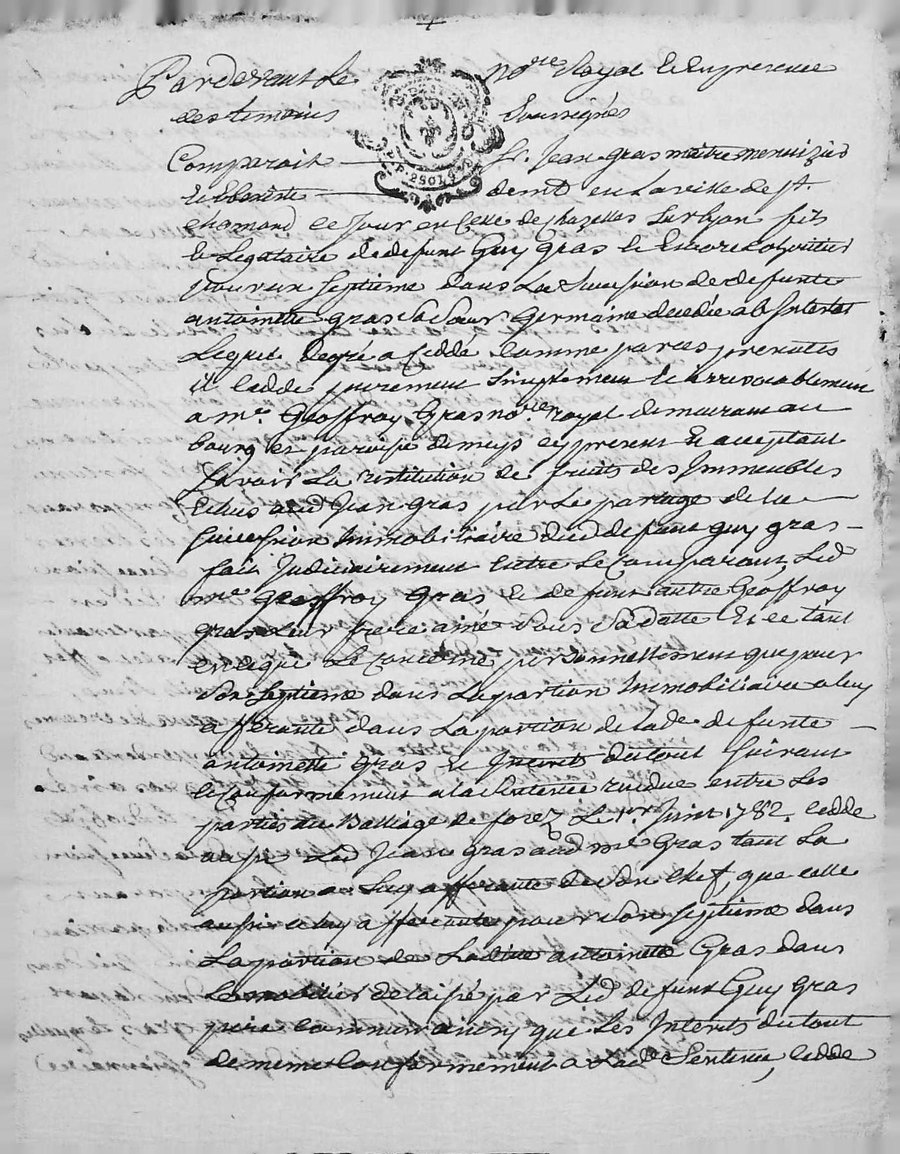 Pardevant Le no.re Royal Et En presence
des temoins Soussignés
Comparait Sr. Jean gras maitre menuizier
Et Ebeniste demt en La ville de St.
chamond ce Jour en Celle de chazelles Sur lyon fils
Et Legataire de defunt Guy Gras Et Encore
pour un Septieme dans La Succession de defunte
antoinette gras Sa Sœur Germaine decedée ab Intestat
Lequel degré a Ceddé comme par ces presentes
il cedde purement Simplement Et irrevocablement
a me. Geoffroy Gras no.re royal demeurant au
bourg et paroisse de meys cy present Et acceptant
Savoir La restitution de fruits des Immeubles
Echus aud. Jean gras par Le partage de La
Succession Immobiliaire dud. defunt guy gras
fait Judiciairement entre Le Comparant, Led.
me. Geoffroy Gras Et defunt autre Geoffroy
gras Leur frere ainé Sous Sa datte Et ce tant
en ce que Le Concerne personnellement que pour
Son Septieme dans La portion Immobiliaire a luy
afferante dans La portion de lade. defunte
antoinette Gras Et Interets du tout Suivant
Et Conformement a la Sentence rendue entre Les
parties au Balliage de forez Le 1er. Juin 1782. cedde
aussi Led. Jean gras aud. me Gras tant La
portion a Luy afferante de Son Chef, que celle
aussi a luy afferente pour Son Septieme dans
La portion de Ladite antoinette Gras dans
Le mobilier delaissé par Led. defunt Guy Gras
pere commun que Les Interets du tout
de meme Conformement a Lade. Sentence, cedde